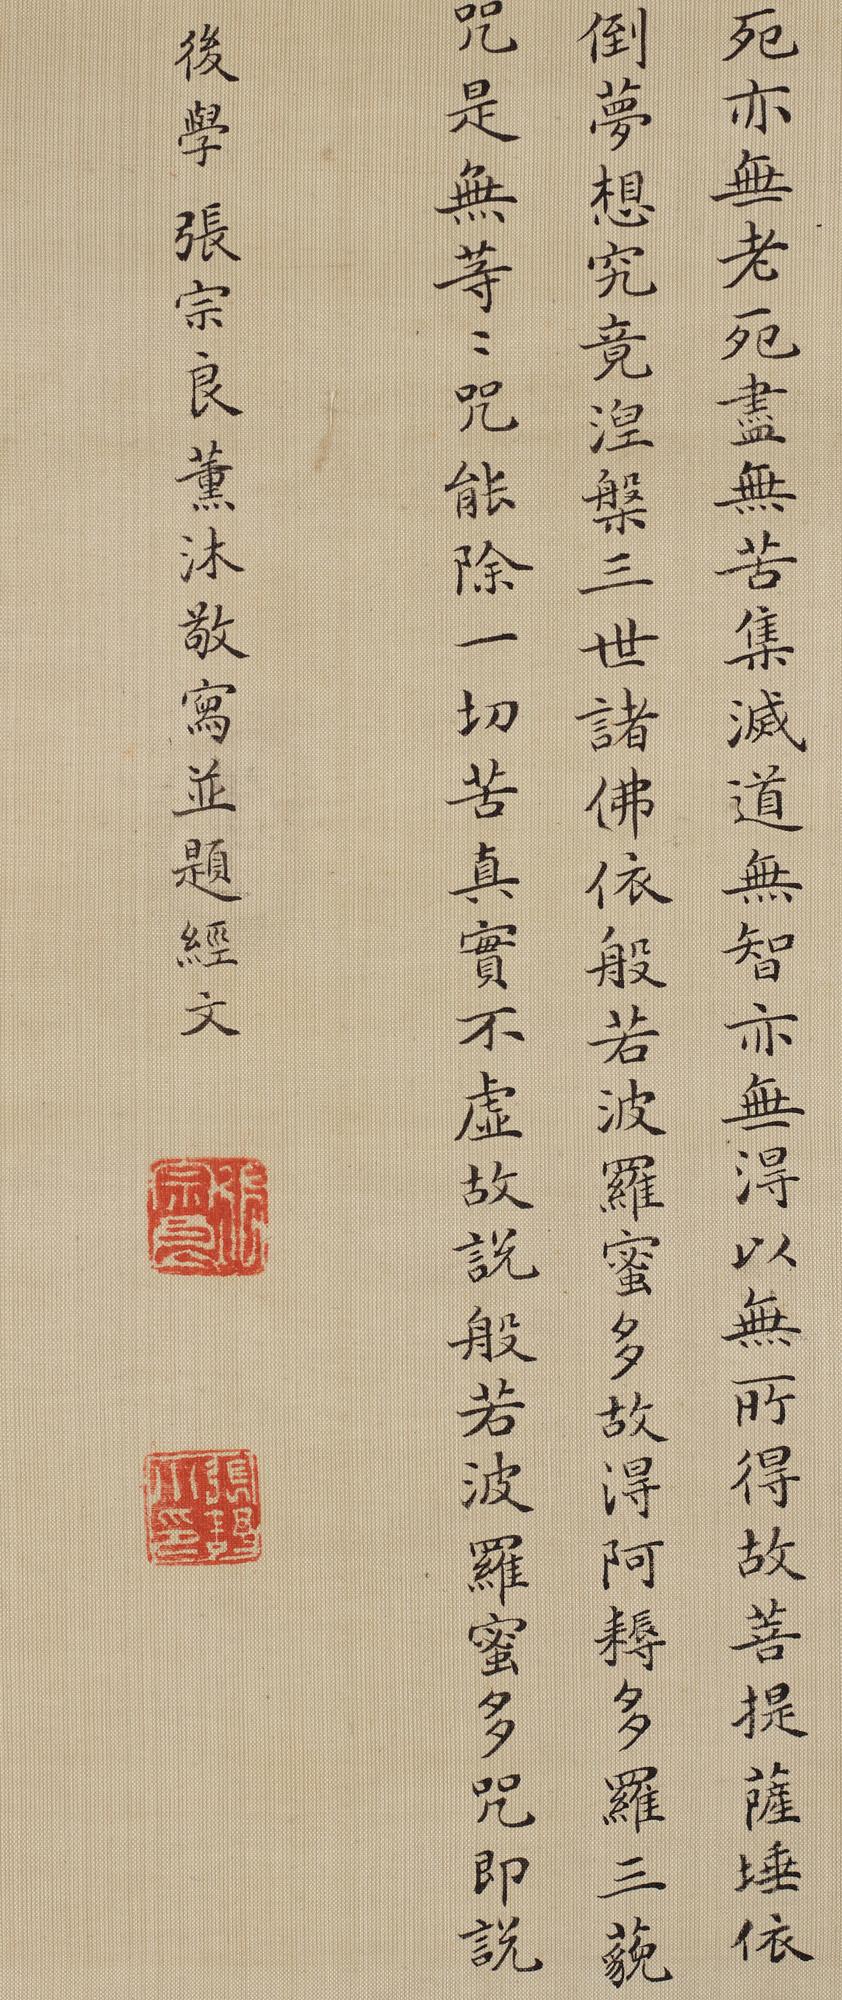 死亦無老死盡無苦集滅道無智亦無得以無所得故菩提薩埵依
倒夢想究竟涅槃三世諸佛依般若波羅蜜多故得阿耨多羅三藐
咒是無等〻咒能除一切苦真實不虛故說般若波羅蜜多咒即說
後學張宗良薰沐敬寫並題經文
張宗良